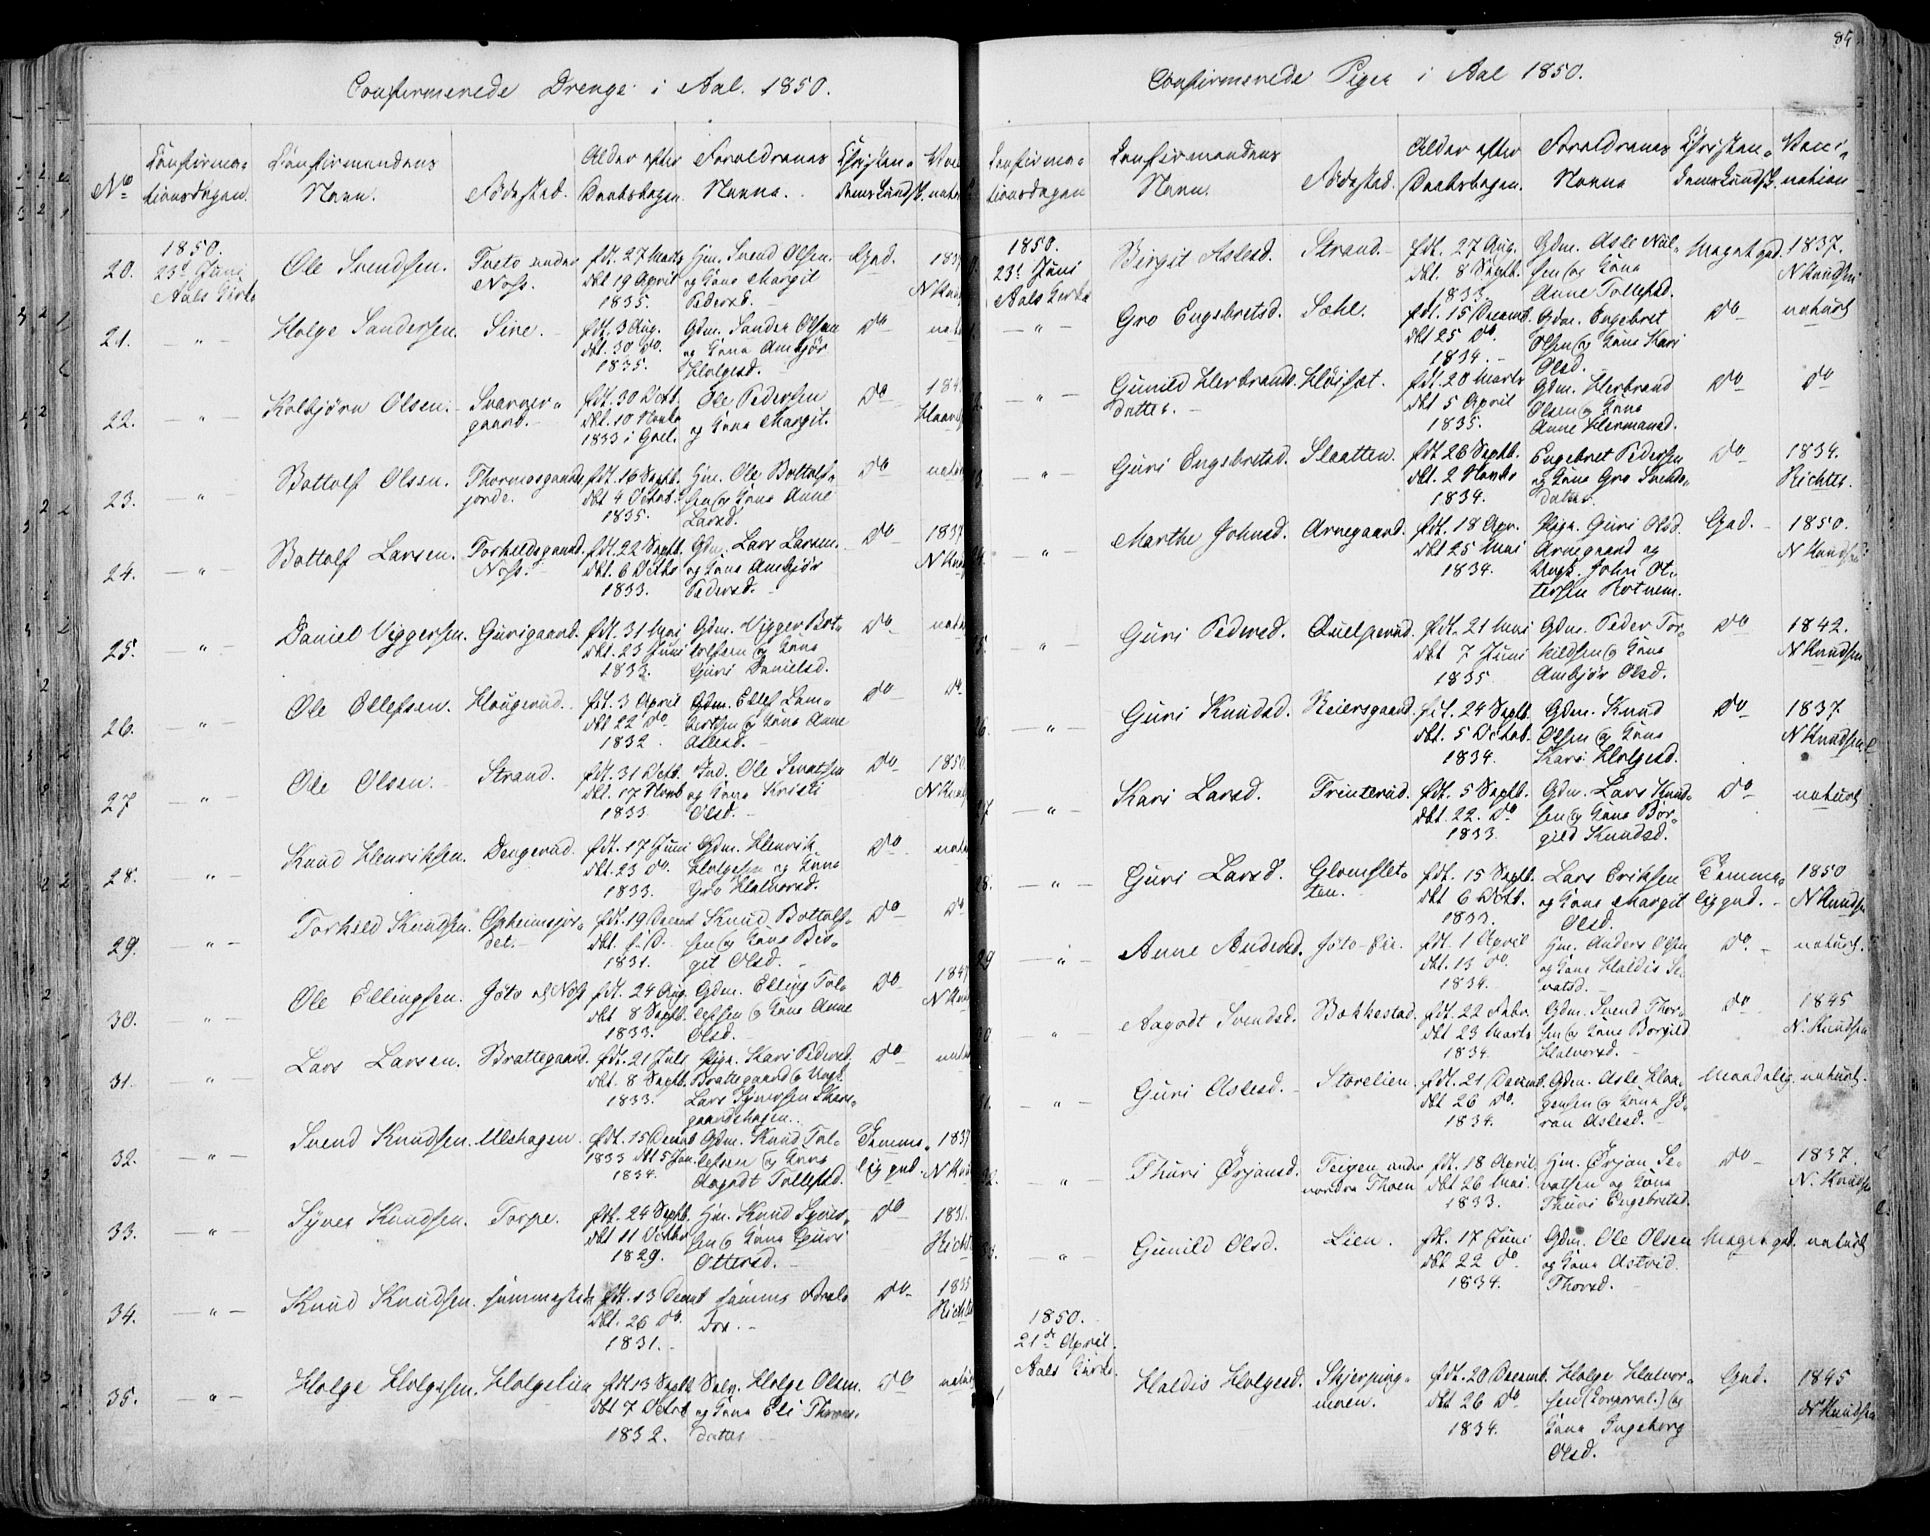 Confirmerede Drenge i Aal. 1850.
No
Confirma-
tionsdagen.
Confirmandens
Navn.
Fødested.
Alder efter
Daabsdagen.
Forældrenes
Navne.
Christen-
domskundsk.
20.
1850.
23de Juni
Aals Kirke
Ole Svendsen.
Tveto under
Noss.
fdt. 27 Marts
dbt 19 April
1835.
Hm. Svend Olsen
og Kone Margit
Pedersd.
God.
21.
— " —
Holge Sandersen.
Sire.
fdt. 3 Aug.
dbt. 30 do.
1835.
Gdm. Sander Olsen
og Kone Ambjør
Holgesd.
do
22.
— " —
Kolbjørn Olsen.
Svarver-
gaard.
fdt. 30 Octb.
dbt. 10 Novbr
1833 i Goel.
Ole Pedersen
og Kone Margit.
do
23.
— " —
Bottolf Olsen.
Thormosgaards
jorde.
fdt. 16 Septb.
dbt 4 Octob.
1835.
Hm. Ole Bottolf-
sen og Kone Anne
Larsd.
do
24.
— " —
Bottolf Larsen.
Torkildsgaard.
Noss.
fdt. 22 Septb.
dbt. 6 Octbr
1833.
Gdm. Lars Larsen
og Kone Ambjør
Pedersd.
do
1837
25.
— " —
Daniel Viggersen.
Gurigaard.
fdt. 31 Mai
dbt. 23 Juni
1833.
Gdm. Vigger Bot-
tolfsen og Kone
Guri Danielsd.
do
26.
— " —
Ole Ellefsen.
Haugerud.
fdt. 3 April
dbt 22 do.
1832.
Gdm. Ellef Lam-
bertsen og Kone Anne
Aslesd.
do
do
27
— " —
Ole Olsen.
Strand.
fdt. 31 Octb.
dbt. 17 Novb
1833.
Ind. Ole Sevatsen
og Kone Kristi
Olsd.
do
1850
28.
— " —
Knud Henriksen.
Dengerud.
fdt. 17 Juni
dbt. 23 do.
1833.
Gdm. Henrik
Holgesen og Kone
Gro Halvorsd.
do
29.
— " —
Torkild Knudsen.
Opheimsjor-
det.
fdt. 19 Decmb
1831.
Knud Bottolf-
sen og Kone Bir-
git Olsd.
do
do
30.
— " —
Ole Ellingsen.
Gjeto
fdt. 24 Aug.
dbt 8 Septb.
1833.
Gdm. Elling Tol-
lefsen og Kone Anne
Olsd.
do
1847
31.
— " —
Lars Larsen.
Brattegaard.
fdt. 21 Juli
dbt. 8 Septb.
1833.
Pige. Kari Pedersd.
Brattegaard og Ungk.
Lars Syversen Thors-
gaardshagen.
do
32.
— " —
Svend Knudsen.
Ulshagen.
fdt. 15 Decmb
1833 dbt 5 Jan.
1834.
Gdm. Knud Tol-
lefsen og Kone
Aagodt Tollefsd.
Temme-
lig god.
1837
33.
— " —
Syver Knudsen.
Torpe.
fdt. 24 Septb.
dbt 11 Octbr
1829.
Hm. Knud Syver-
sen og Kone Guri
Ottersd.
do
1831.
34.
— " —
Knud Knudsen.
sammesteds
fdt. 13 Decmb
dbt. 26 do.
1831.
samme Foræl-
dre.
do
1835
35.
— " —
Holge Holgesen.
Holgelien
fdt 13 Septb
dbt 7 Octob
1832.
Selv. Holge Olsen.
og Kone Eli Thores-
datter
do
85
Confirmerede Piger i Aal 1850.
Confirma-
tionsdagen
Confirmandens
Navn.
Fødested.
Alder efter
Daabsdagen.
Forældrenes
Navne
Christen-
domskundsk.
Vacci-
nation
1850.
23de Juni
Aals Kirke
Birgit Aslesd.
Strand.
fdt. 27 Aug.
dbt. 8 Septb.
1833.
Gdm. Asle Niel-
sen og Kone
Anne Tollefsd.
Meget god.
1837.
N Knudsen
— " —
Gro Engebretsd.
Sæhl.
fdt. 15 Decmb.
dbt 25 do.
1834.
Gdm. Engebret
Olsen og Kone Kari
Olsd.
do
naturl
— " —
Gunild Herbrands-
datter.
Høisæt.
fdt. 20 Marts
dbt 5 April
1835.
Gdm. Herbrand
Olsen og Kone
Anne Hermansd.
do
do
"
Guri Engebretsd.
Slaatten.
fdt 26 Septb.
dbt. 2 Novbr
1834.
Engebret Pedersen
og Kone Gro Svends-
datter.
do
1834.
Richter.
"
Marthe Johnsd.
Arnegaard.
fdt. 18 Apr.
dbt 25 Mai
1834.
Pige. Guri Olsd.
Arnegaard og
Ungk. John Ot-
tersen Rotneim.
God.
1850.
N Knudsen
"
Guri Pedersd.
Quelprud.
fdt. 21 Mai
dbt 7 Juni
1835
Gdm. Peder Tor-
kildsen og Kone
Ambjør Olsd.
do
1842.
N Knudsen
"
Guri Knudsd.
Reiersgaard.
fdt. 24 Septb.
dbt. 5 Octob.
1834.
Gdm. Knud
Olsen og Kone
Kari Holgesd.
do
1837
N Knudsen
— " —
Kari Larsd.
Trinterud.
fdt. 5 Septb.
dbt. 22. do
1833.
Gdm. Lars Knud-
sen og Kone Bor-
gild Knudsd.
do
naturl
— " —
Guri Larsd.
Glomslet-
ten.
fdt. 15 Septb.
dbt 6 Octb.
1833.
Lars Eriksen
og Kone Margit
Olsd.
Temme-
lig god.
1850
N Knudsen
29
— " —
Anne Andersd.
fdt. 1 April
dbt. 13 do.
1834.
Hm. Anders Olsen
og Kone Haldis Se-
vatsd.
do.
naturl.
"
Aagodt Svendsd.
Bakkestad.
fdt. 22 Febr.
dbt 23 Marts
1834
Gdm. Svend Thor-
sen og Kone Borgild
Halvorsd.
do
1845
N. Knudsen
— " —
Guri Aslesd.
Storelien.
fdt. 21 Decmb.
dbt 26 do.
1834.
Gdm. Asle Haa-
gensen og Kone Jø-
ran Aslesd.
Maadelig.
naturl.
— " —
Thuri Ørjansd.
Teigen under
nordre Thoen
fdt. 18 April
dbt 26 Mai.
1833.
Hm. Ørjan Se-
vatsen og Kone
Thuri Engebretsd.
do
1837.
N. Knudsen
"
Gunild Olsd.
Lien.
fdt. 17 Juni
dbt 22 do.
1834.
Gdm. Ole Olsen
og Kone Astrid
Thorsd.
Meget god.
naturl
1850.
21de April.
Aals Kirke.
Haldis Holgesd.
Skjerping-
moen.
fdt. 20 Decmb.
dbt 26 do
1834.
Holge Halvor-
sen (Corporal.) og
Kone Ingeborg
Olsd.
God.
1845
N Knudsen